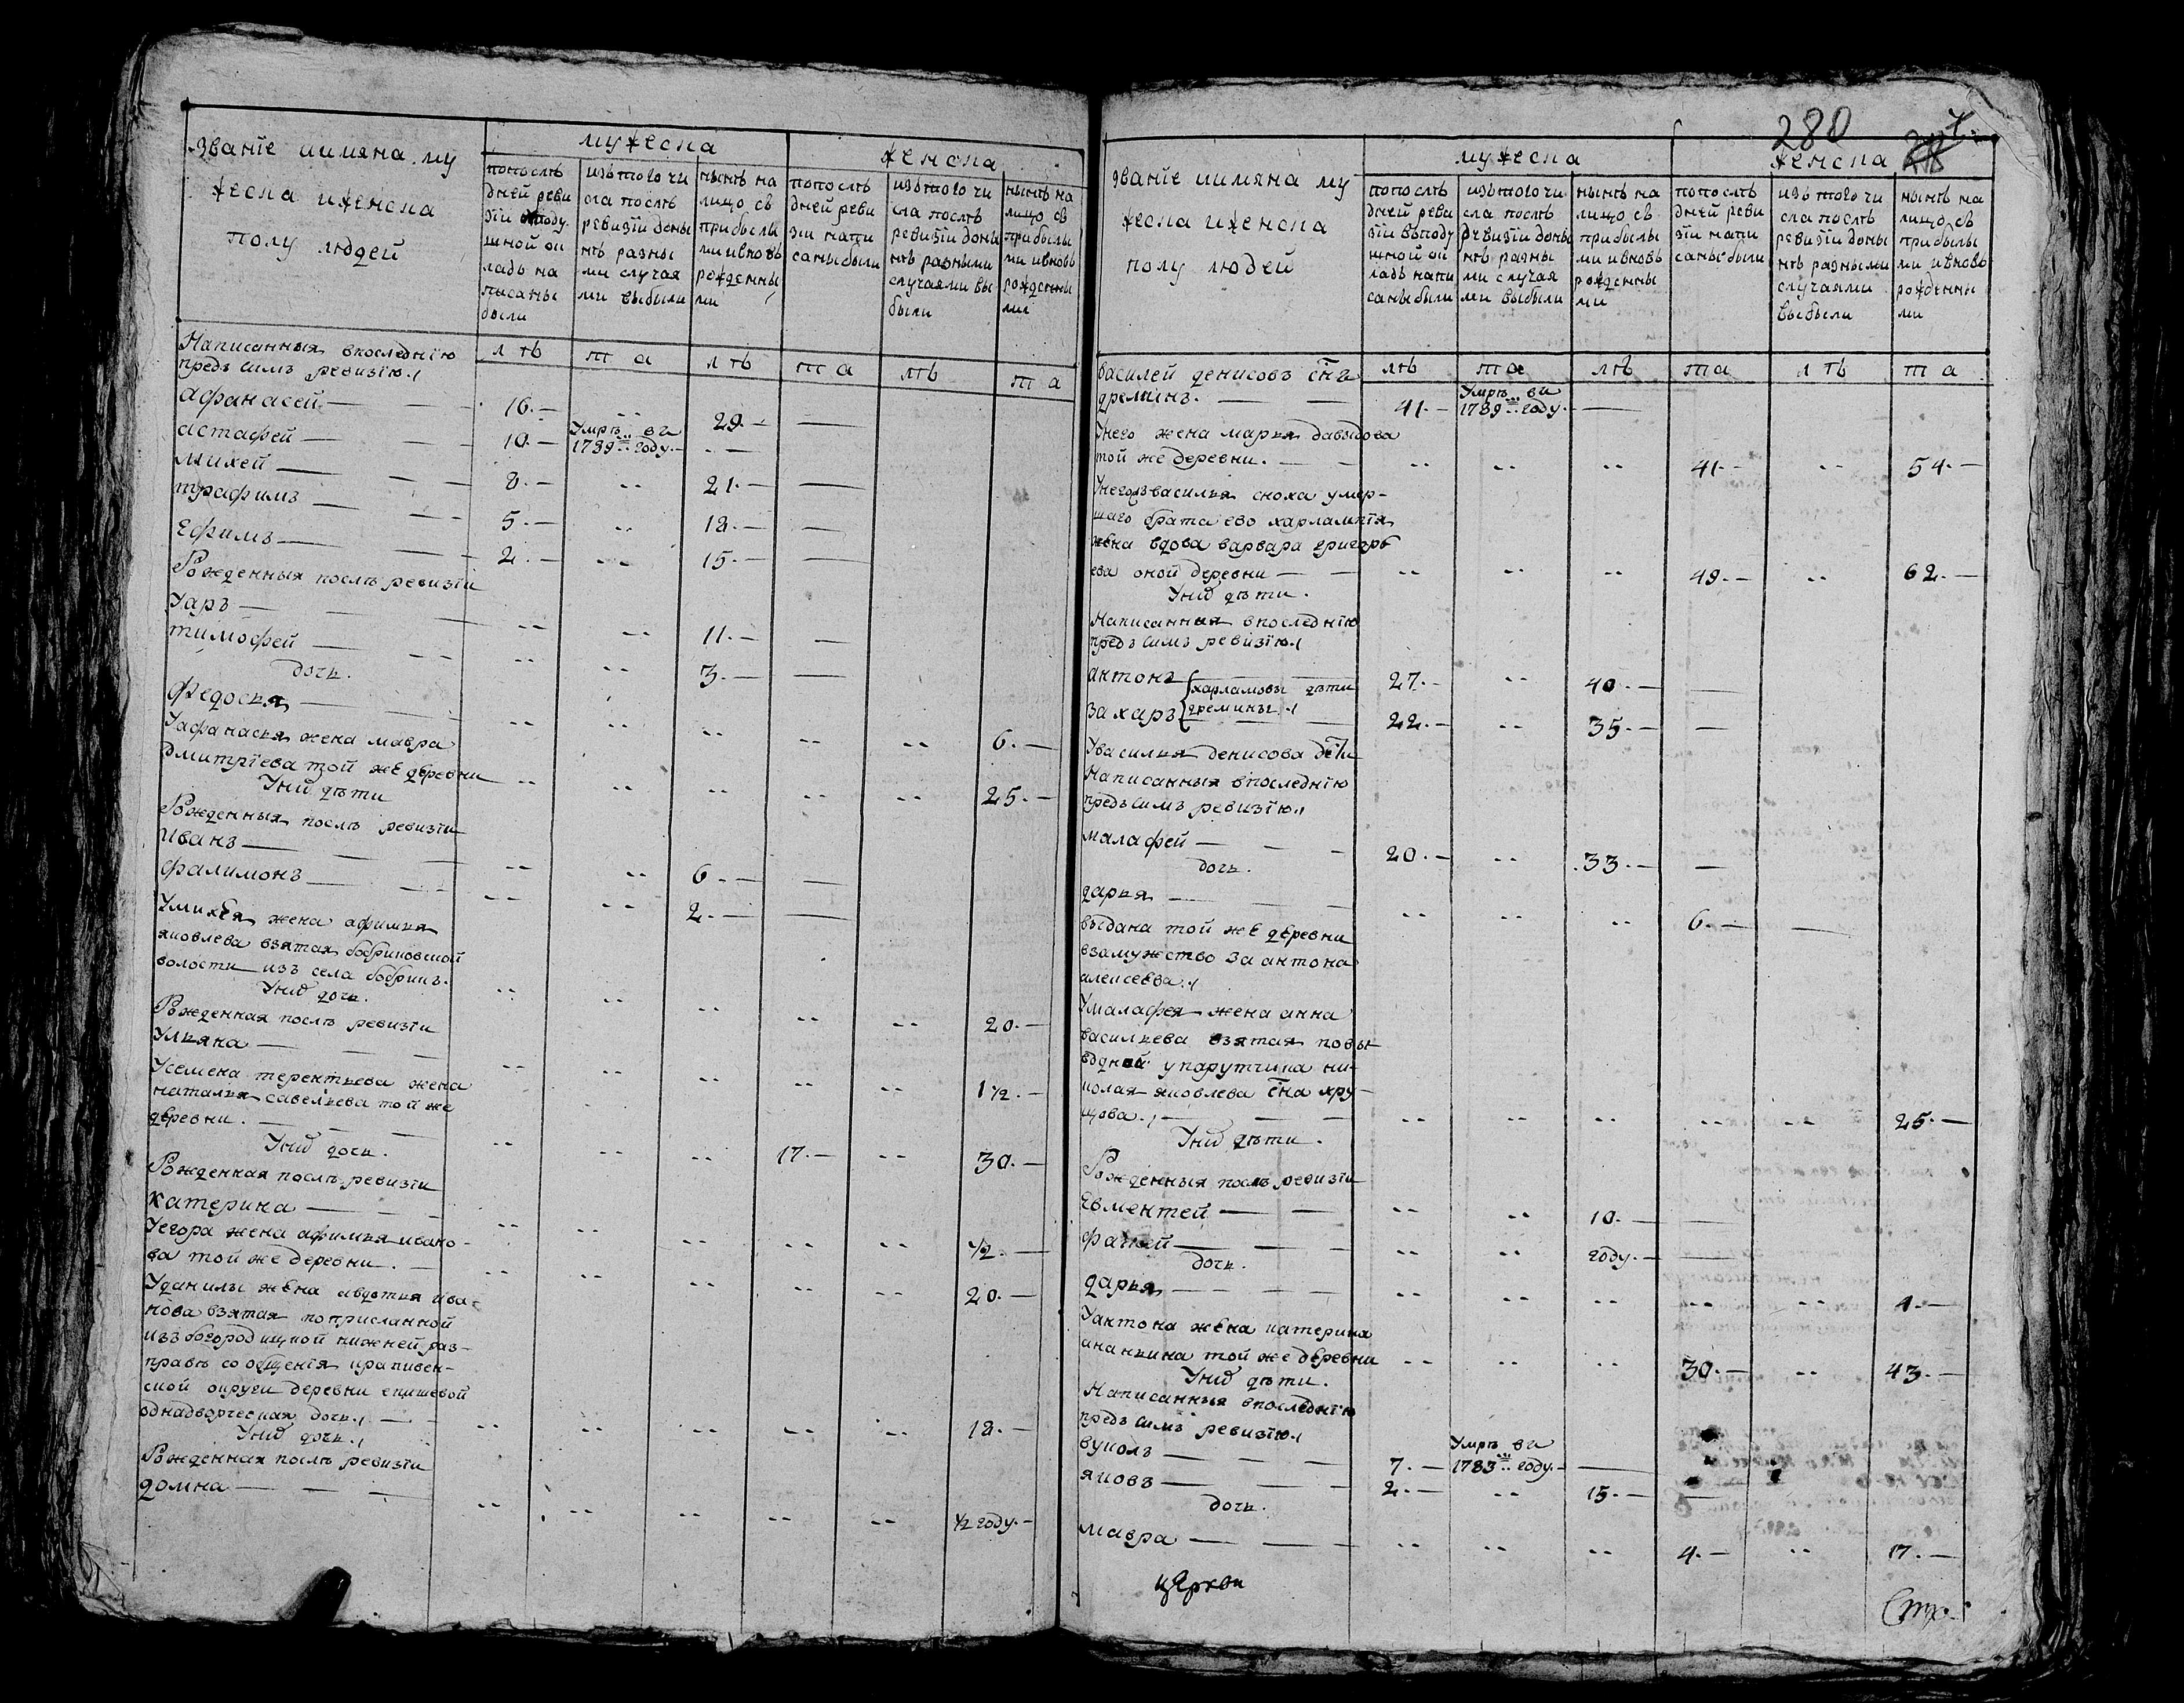 званїе иимяна му
жеска иженска
полу людей
мужеска
женска
попослѣ
дней реви
зїи вподу
шной ок
ладъ на
писаны
были
изътого чи
сла послѣ
ревизїи доны
нѣ разны
ми случая
ми выбыли
нынѣ на
лицо съ
прибылы
ми ивновь
рожденны
ми
попослѣ
дней реви
зїи напи
саны были
изътого чи
сла послѣ
ревизїи доны
нѣ разными
случаями вы
были
нынѣ на
лицо съ
прибылы
ми ивновь
рожденны
ми
лѣ та лѣ та лѣ та
Написанныя впоследнїю
предъ симъ ревизїю
афанасей — 16. — .. 29. —
астафей — 10. — умръ в
1789 году. — .. —
михей — 8. — .. 21. —
трафимъ — 5. — .. 18. —
ефимъ — 2. — .. 15. —
Рожденныя послѣ ревизїи
Уаръ — .. .. 11. —
тимофей — .. .. 3. —
дочь.
Федосья — .. .. .. .. .. 6. —
Уафанасья жена мавра
дмитрїева той же деревни .. .. .. .. .. 25. —
Унихъ дѣти
Рожденныя послѣ ревизїи
Иванъ — .. .. 6. —
фалимонъ — .. .. 2. —
Умихея жена афимья
яковлева взятая бобриковской
волости изъ села бобрикъ. .. .. .. .. .. 20. —
Унихъ дочь.
Рожденная послѣ ревизїи
Ульяна — .. .. .. .. .. 1 1/2. —
Усемена терентьева жена
наталья савельева той же
деревни. — .. .. .. 17. — .. 30. —
Унихъ дочь.
Рожденная послѣ ревизїи
катерина — .. .. .. .. .. 1/2. —
Уегора жена афимья ивано-
ва той же деревни. — .. .. .. .. .. 20. —
Уданилы жена авдотья ива-
нова взятая поприсланной
изъ богородицкой нижней рас-
правѣ сообщенїя крапивен-
ской округи деревни епишевой
однадворческая дочь — .. .. .. .. .. 18. —
Унихъ дочь.
Рожденная послѣ ревизїи
домна — .. .. .. .. .. 1/2 году. —
280
званїе иимяна му
жеска иженска
полу людей
мужеска
женска
попослѣ
дней реви
зїи вподу
шной ок
ладъ напи
саны были
изътого чи
сла послѣ
ревизїи доны
нѣ разны
ми случая
ми выбыли
нынѣ на
лицо съ
прибылы
ми ивновь
рожденны
ми
попослѣ
дней реви
зїи напи
саны были
изътого чи
сла послѣ
ревизїи доны
нѣ разными
случаями
выбыли
нынѣ на
лицо съ
прибылы
ми ивновь
рожденны
ми
лѣ та лѣ та лѣ та
василей денисовъ снъ
дреминъ. — 41. — умръ в
1789 году. —
Унего жена марья давыдова
той же деревни. — .. .. .. 41. — .. 54. —
Унегожъ василья сноха умер-
шаго брата ево харлампїя
жена вдова варвара григорь
ева оной деревни — .. .. .. 49. — .. 62. —
Унихъ дѣти.
Написанныя впоследнїю
предъ симъ ревизїю
антонъ 27. — .. 40. —
харламовы дѣти
дремины
захаръ 22. — .. 35. —
Увасилья денисова дети
Написанныя впоследнїю
предъ симъ ревизїю
малафей — 20. — .. 33. —
дочь.
дарья — .. .. .. 6. —
выдана той же деревни
взамужство за антона
алексеева.
Умалафея жена анна
васильева взятая повы-
водной упарутчика ни-
колая яковлева сна хру-
щова. — .. .. .. .. .. 25. —
Унихъ дѣти.
Рожденныя послѣ ревизїи
Евментей — .. .. 10. —
фатей — .. .. году. —
дочь.
дарья — .. .. .. .. .. 4. —
Уантона жена катерина
ананьина той же деревни .. .. .. 30. — .. 43. —
Унихъ дѣти.
Написанныя впоследнїю
предъ симъ ревизїю
вуколъ — 7. — умръ в
1783 году. —
яковъ — 2. — .. 15. —
дочь.
мавра — .. .. .. 4. — .. 17. —
церкви